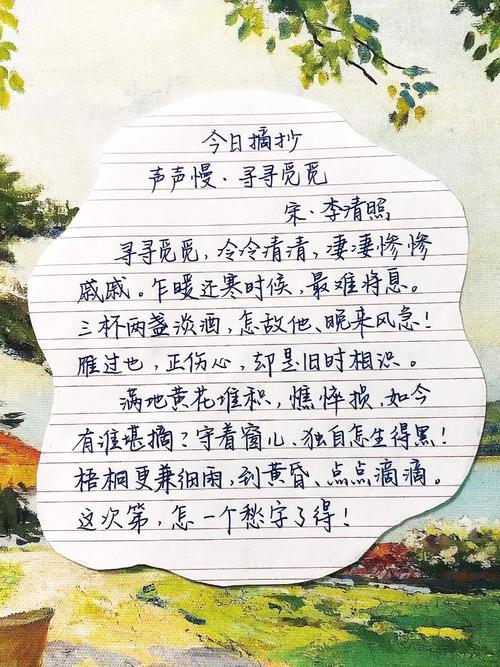 今日摘抄
声声慢·寻寻觅觅
宋·李清照
寻寻觅觅，冷冷清清，凄凄惨惨
戚戚。乍暖还寒时候，最难将息。
三杯两盏淡酒，怎敌他、晚来风急！
雁过也，正伤心，却是旧时相识。
满地黄花堆积，憔悴损，如今
有谁堪摘？守着窗儿、独自怎生得黑！
梧桐更兼细雨，到黄昏、点点滴滴。
这次第，怎一个愁字了得！